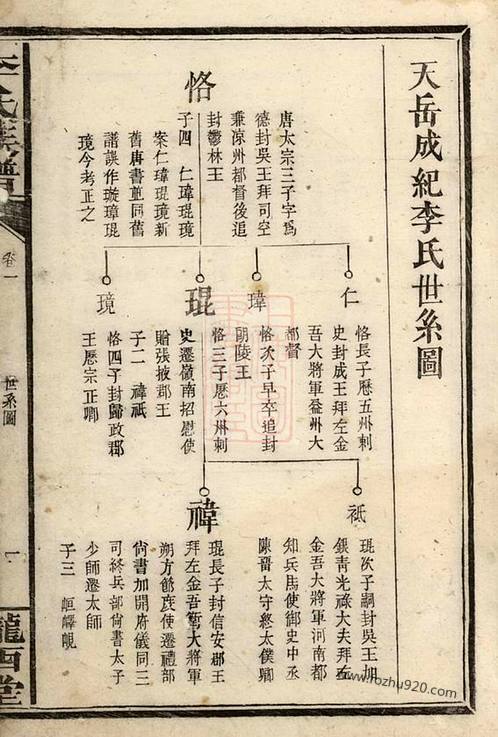 天岳成紀李氏世系圖
恪
唐太宗三子字爲
德封吳王拜司空
兼凉州都督後追
封鬱林王
子四　仁瑋琨璄
案仁瑋琨璄新
舊唐書並同舊
譜誤作璇璋琨
璄今考正之
仁
恪長子歷五州刺
史封成王拜左金
吾大將軍益州大
都督
瑋
恪次子早卒追封
朗陵王
琨
恪三子歷六州刺
史遷嶺南招慰使
贈張掖郡王
子二　禕祇
璄
恪四子封歸政郡
王歷宗正卿
祇
琨次子嗣封吳王加
銀青光祿大夫拜左
金吾大將軍河南都
知兵馬使御史中丞
陳晉太守終太僕卿
禕
琨長子封信安郡王
拜左金吾衛大將軍
朔方節度使遷禮部
尙書加開府儀同三
司終兵部尙書太子
少師遷太師
子三　峘嶧峴
李氏族譜
卷一
世系圖
一
隴西堂
www.rozhu920.com